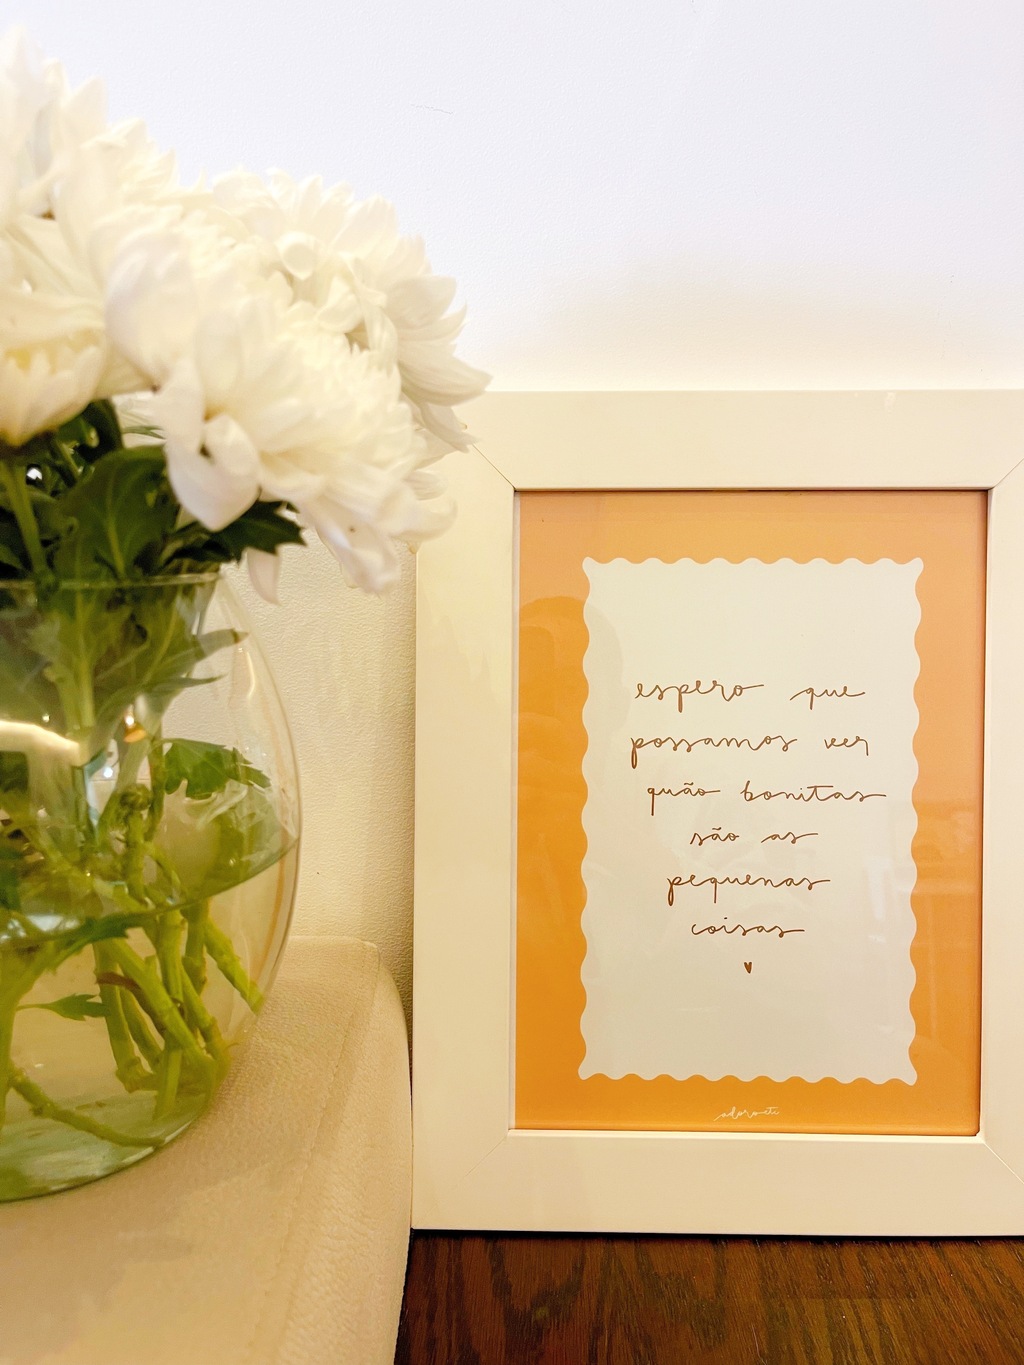 espero que
possamos ver
quão bonitas
são as
pequenas
coisas
adoroeti